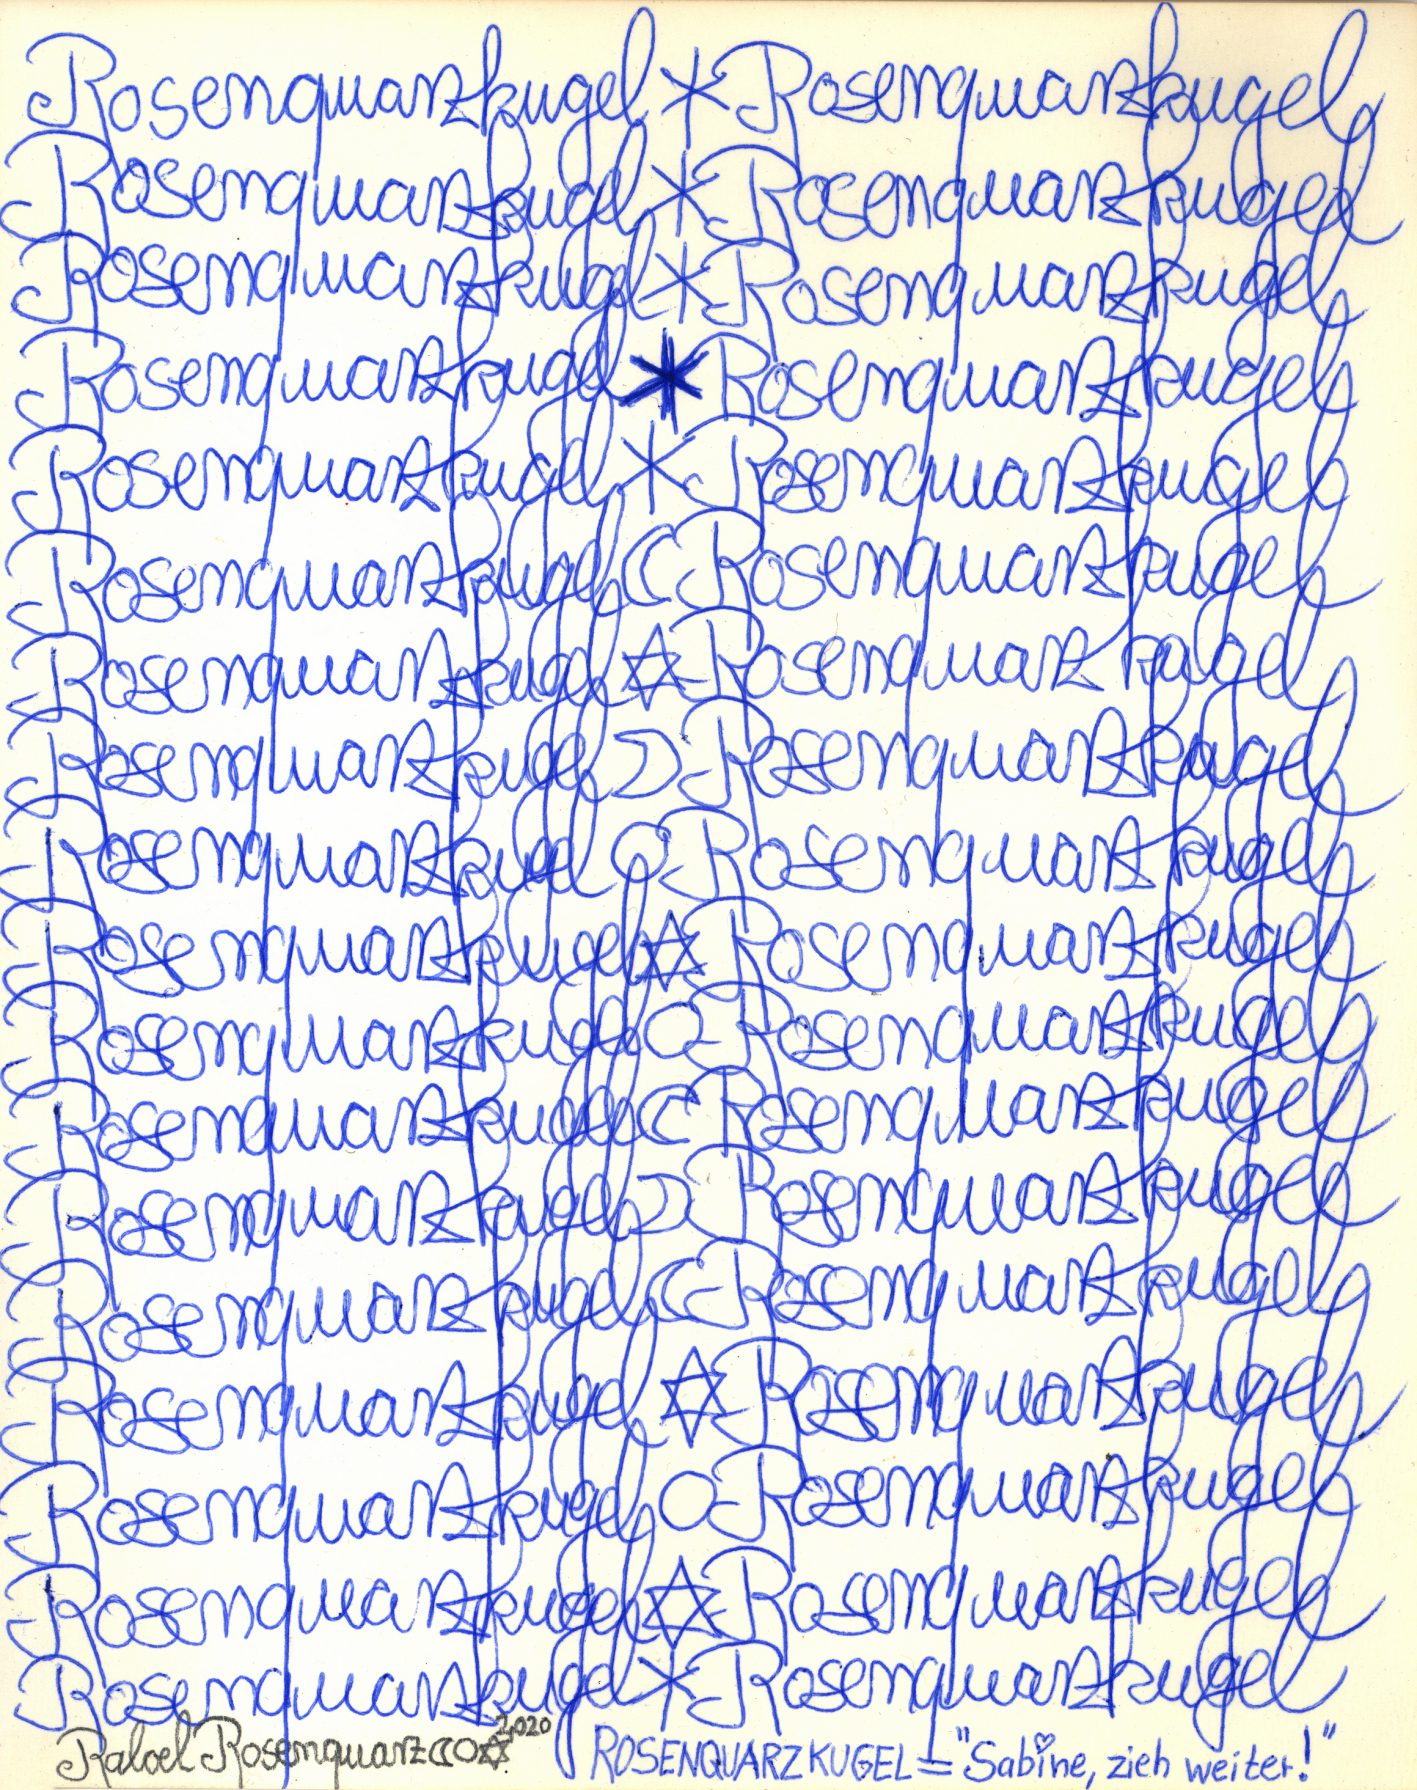 Rosenquarzkugel * Rosenquarzkugel
Rosenquarzkugel * Rosenquarzkugel
Rosenquarzkugel * Rosenquarzkugel
Rosenquarzkugel * Rosenquarzkugel
Rosenquarzkugel * Rosenquarzkugel
Rosenquarzkugel ☾ Rosenquarzkugel
Rosenquarzkugel ✡ Rosenquarzkugel
Rosenquarzkugel ☽ Rosenquarzkugel
Rosenquarzkugel ○ Rosenquarzkugel
Rosenquarzkugel ✡ Rosenquarzkugel
Rosenquarzkugel ○ Rosenquarzkugel
Rosenquarzkugel ☾ Rosenquarzkugel
Rosenquarzkugel ☽ Rosenquarzkugel
Rosenquarzkugel ☾ Rosenquarzkugel
Rosenquarzkugel ✡ Rosenquarzkugel
Rosenquarzkugel ○ Rosenquarzkugel
Rosenquarzkugel ✡ Rosenquarzkugel
Rosenquarzkugel * Rosenquarzkugel
Rosenquarz ☾☾○✡ 2020 ROSENQUARZKUGEL = "Sabine, zieh weiter!"